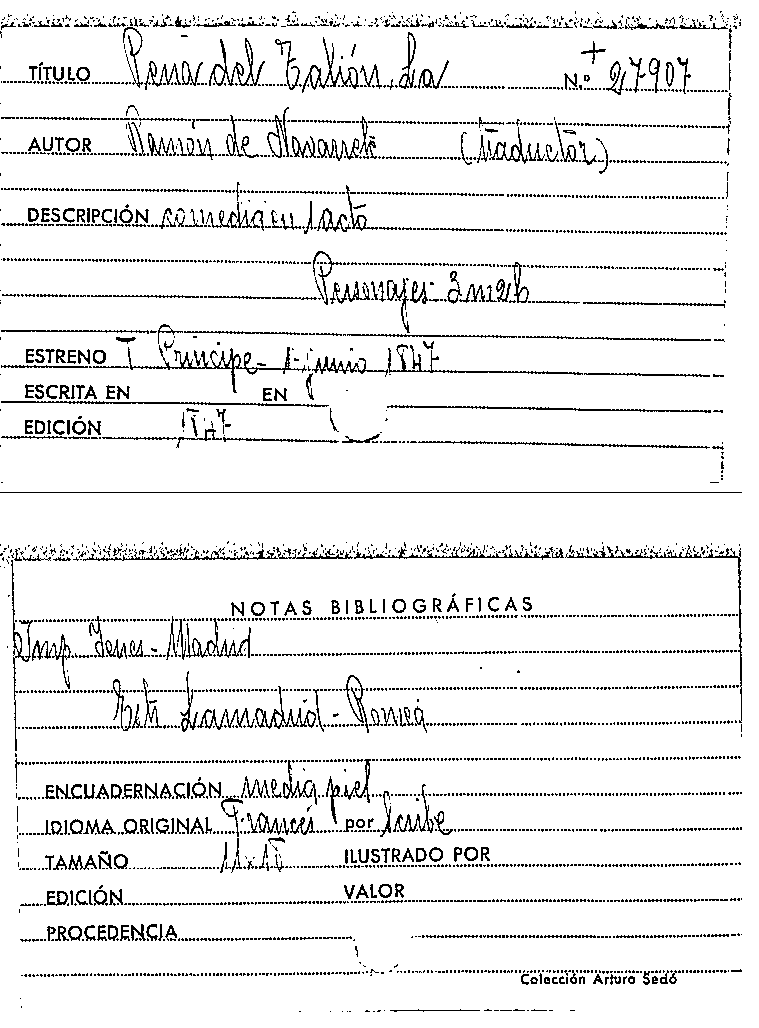 TÍTULO Pena del Talión, La N.º + 27907
AUTOR Ramón de Navarrete (traductor)
DESCRIPCIÓN comedia en 1 acto
Personajes- 3m2h
ESTRENO T Príncipe- 1-junio 1847
ESCRITA EN EN
EDICIÓN 1847
NOTAS BIBLIOGRÁFICAS
Imp. Yenes- Madrid
Estr Lamadrid- Romea
ENCUADERNACIÓN media piel
IDIOMA ORIGINAL Francés por Scribe
TAMAÑO 11x18 ILUSTRADO POR
EDICIÓN VALOR
PROCEDENCIA
Colección Arturo Sedó